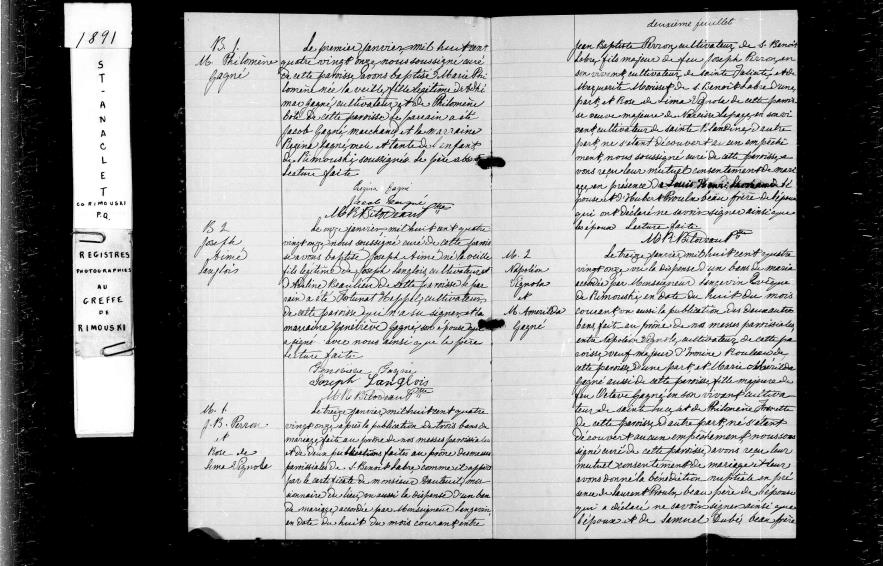 1891
ST-ANACLET
CO. RIMOUSKI
P.Q.
REGISTRES
PHOTOGRAPHIES
AU
GREFFE
DE
RIMOUSKI
B. 1.
M. Philomène
Gagné
Le premier janvier, mil huit cent
quatre vingt onze, nous soussigné curé
de cette paroisse avons baptisé Marie Phi-
lomène née la veille, fille légitime de
mar Gagné, cultivateur, et de Philomène
de cette paroisse. Le parrain a été
Jacob Gagné, marchand, et la marraine
Regina Gagné, et tante de l'enfant
de Rimouski, soussignés. Le père
Lecture faite.
Regina Gagné
Jacob Gagné
M. R. Bilodeau Ptre
B. 2
Joseph
Aimé
Langlois
Le onze janvier, mil huit cent quatre
vingt onze, nous soussigné curé de cette parois
se avons baptisé Joseph Aimé né la veille
fils légitime de Joseph Langlois, cultivateur, et
d'Beaulieu de cette paroisse. Le par
rain a été cultivateur,
de cette paroisse qui n'a su signer, et la
marraine Geneviève Gagné, son épouse qui
a signé avec nous ainsi que le père.
Lecture faite.
Geneviève Gagné
Joseph Langlois
M. R. Bilodeau Ptre
M. 1.
J. B. Perron
et
Rose de
Lima Vignola
Le treize janvier, mil huit cent quatre
vingt onze, après la publication de trois bans de
mariage faite au prône de nos messes paroissiales
et de deux publications faites au prône des messes
paroissiales de St Benoit Labre comme il appert
par le certificat de monsieur Dauteuil, mis-
sionnaire du lieu, vu aussi la dispense d'un ban
de mariage accordée par Monseigneur Langevin
en date du huit du mois courant, entre
deuxième feuillet
Jean Baptiste Perron, cultivateur, de St Benoit
Labre, fils majeur de feu Joseph Perron, en
son vivant, cultivateur, de Sainte et de
Marguerite de St Benoit Labre d'une
part, et Rose de Lima Vignola de cette parois
se veuve majeure de Narcisse Lepage, en son vi
vant, cultivateur, de Sainte d'autre
part, ne s'étant découvert aucun empêche
ment, nous soussigné curé de cette paroisse, a
vons reçu leur mutuel consentement de mari
age, en présence de
pouse, et d'Hubert Proulx, beau frère de l'époux
qui ont déclaré ne savoir signer ainsi que
les époux. Lecture faite.
M. R. Bilodeau Ptre
M. 2
Napoléon
Vignola
et
M.
Gagné
Le treize janvier, mil huit cent quatre
vingt onze, vu la dispense d'un bans de mariage
accordée par Monseigneur Langevin, Evêque
de Rimouski, en date du huit du mois
courant, vu aussi la publication des deux autres
bans, fait au prône de nos messes paroissiales
entre Napoléon Vignola, cultivateur, de cette pa
roisse, veuf majeur d'Rouleau de
cette paroisse, d'une part, et Marie
Gagné aussi de cette paroisse, fille majeure de
feu Octave Gagné, en son vivant, cultiva
teur, de Sainte Luce, et de Philomène
de cette paroisse, d'autre part, ne s'étant
découvert aucun empêchement, nous sous
signé curé de cette paroisse, avons reçu leur
mutuel consentement de mariage, et leur
avons donné la bénédiction nuptiale en pré
sence de Laurent Proulx, beau père de l'épouse
qui a déclaré ne savoir signer ainsi que
l'époux, et de Samuel Dubé, beau frère